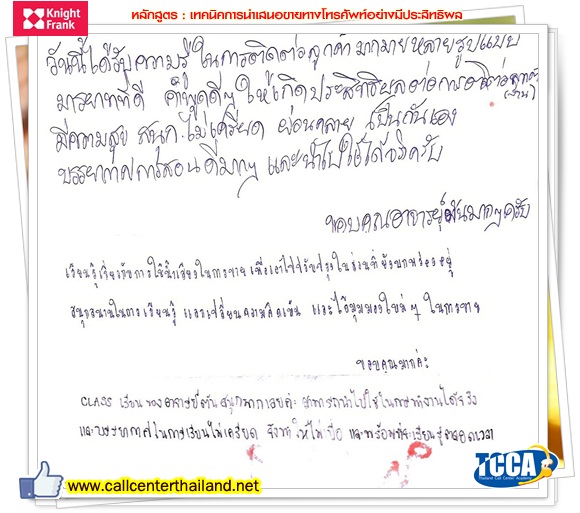 Knight Frank
หลักสูตร : เทคนิคการนำเสนอขายทางโทรศัพท์อย่างมีประสิทธิผล
วันนี้ได้รับความรู้ในการติดต่อลูกค้า มากมายหลายรูปแบบ
มารยาทที่ดี คำพูดดีๆ ให้เกิดประสิทธิผลต่อการติดต่องาน
มีความสุข สนุก ไม่เครียด ผ่อนคลาย เป็นกันเอง
บรรยากาศการสอนดีมากๆ และนำไปใช้ได้จริงครับ
ขอบคุณอาจารย์มากๆครับ
เรียนรู้เกี่ยวกับการใช้น้ำเสียงในการขาย เพื่อเอาไปปรับปรุงในส่วนที่ยังบกพร่องอยู่
สนุกสนานในการเรียนรู้ แลกเปลี่ยนความคิดเห็น และได้มุมมองใหม่ๆ ในการขาย
ขอบคุณมากค่ะ
CLASS เรียนของอาจารย์สนุกมากเลยค่ะ สามารถนำไปใช้ในการทำงานได้จริง
และบรรยากาศในการเรียนไม่เครียด จึงทำให้ไม่เบื่อ และพร้อมที่จะเรียนรู้ตลอดเวลา
TCCA
Thailand Call Center Academy
www.callcenterthailand.net